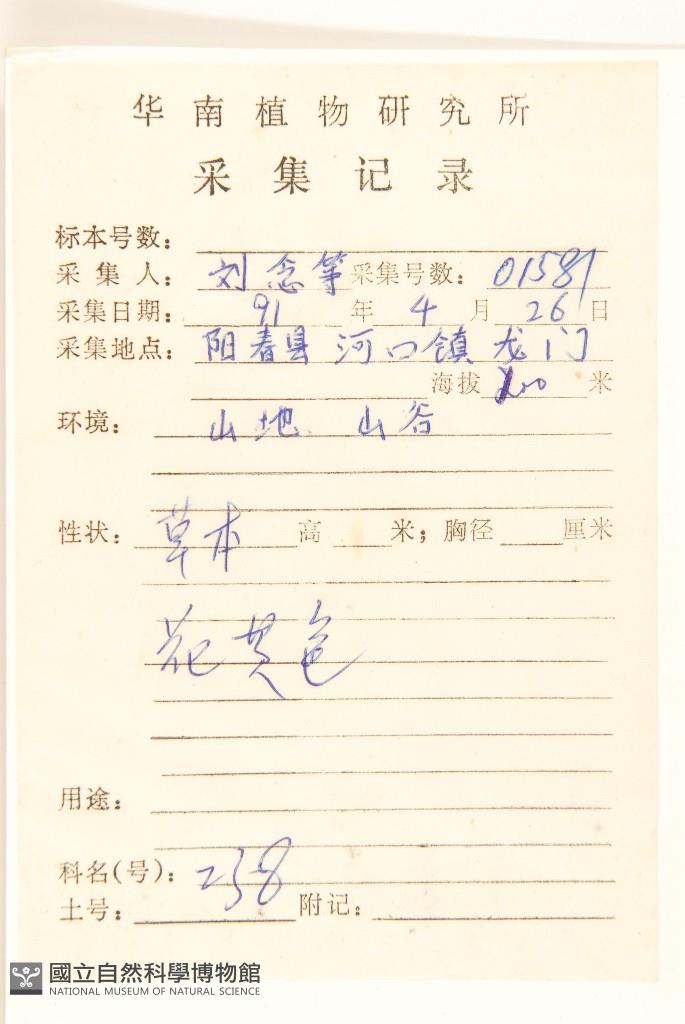 华南植物研究所
采集记录
标本号数：
采集人：刘念等 采集号数：01581
采集日期：91年4月26日
采集地点：阳春县 河口镇 龙门
海拔 米
环境：山地 山谷
性状：草本 高 米；胸径 厘米
花黄色
用途：
科名(号)：258
土号： 附记：
國立自然科學博物館
NATIONAL MUSEUM OF NATURAL SCIENCE